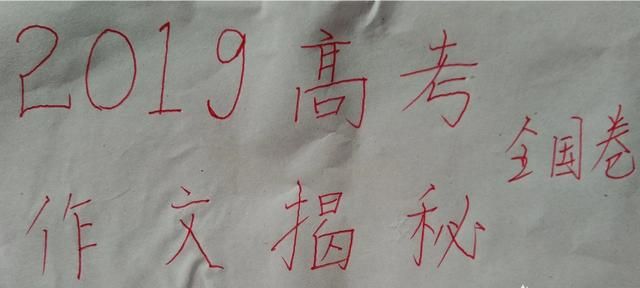 2019高考
全国卷
作文揭秘